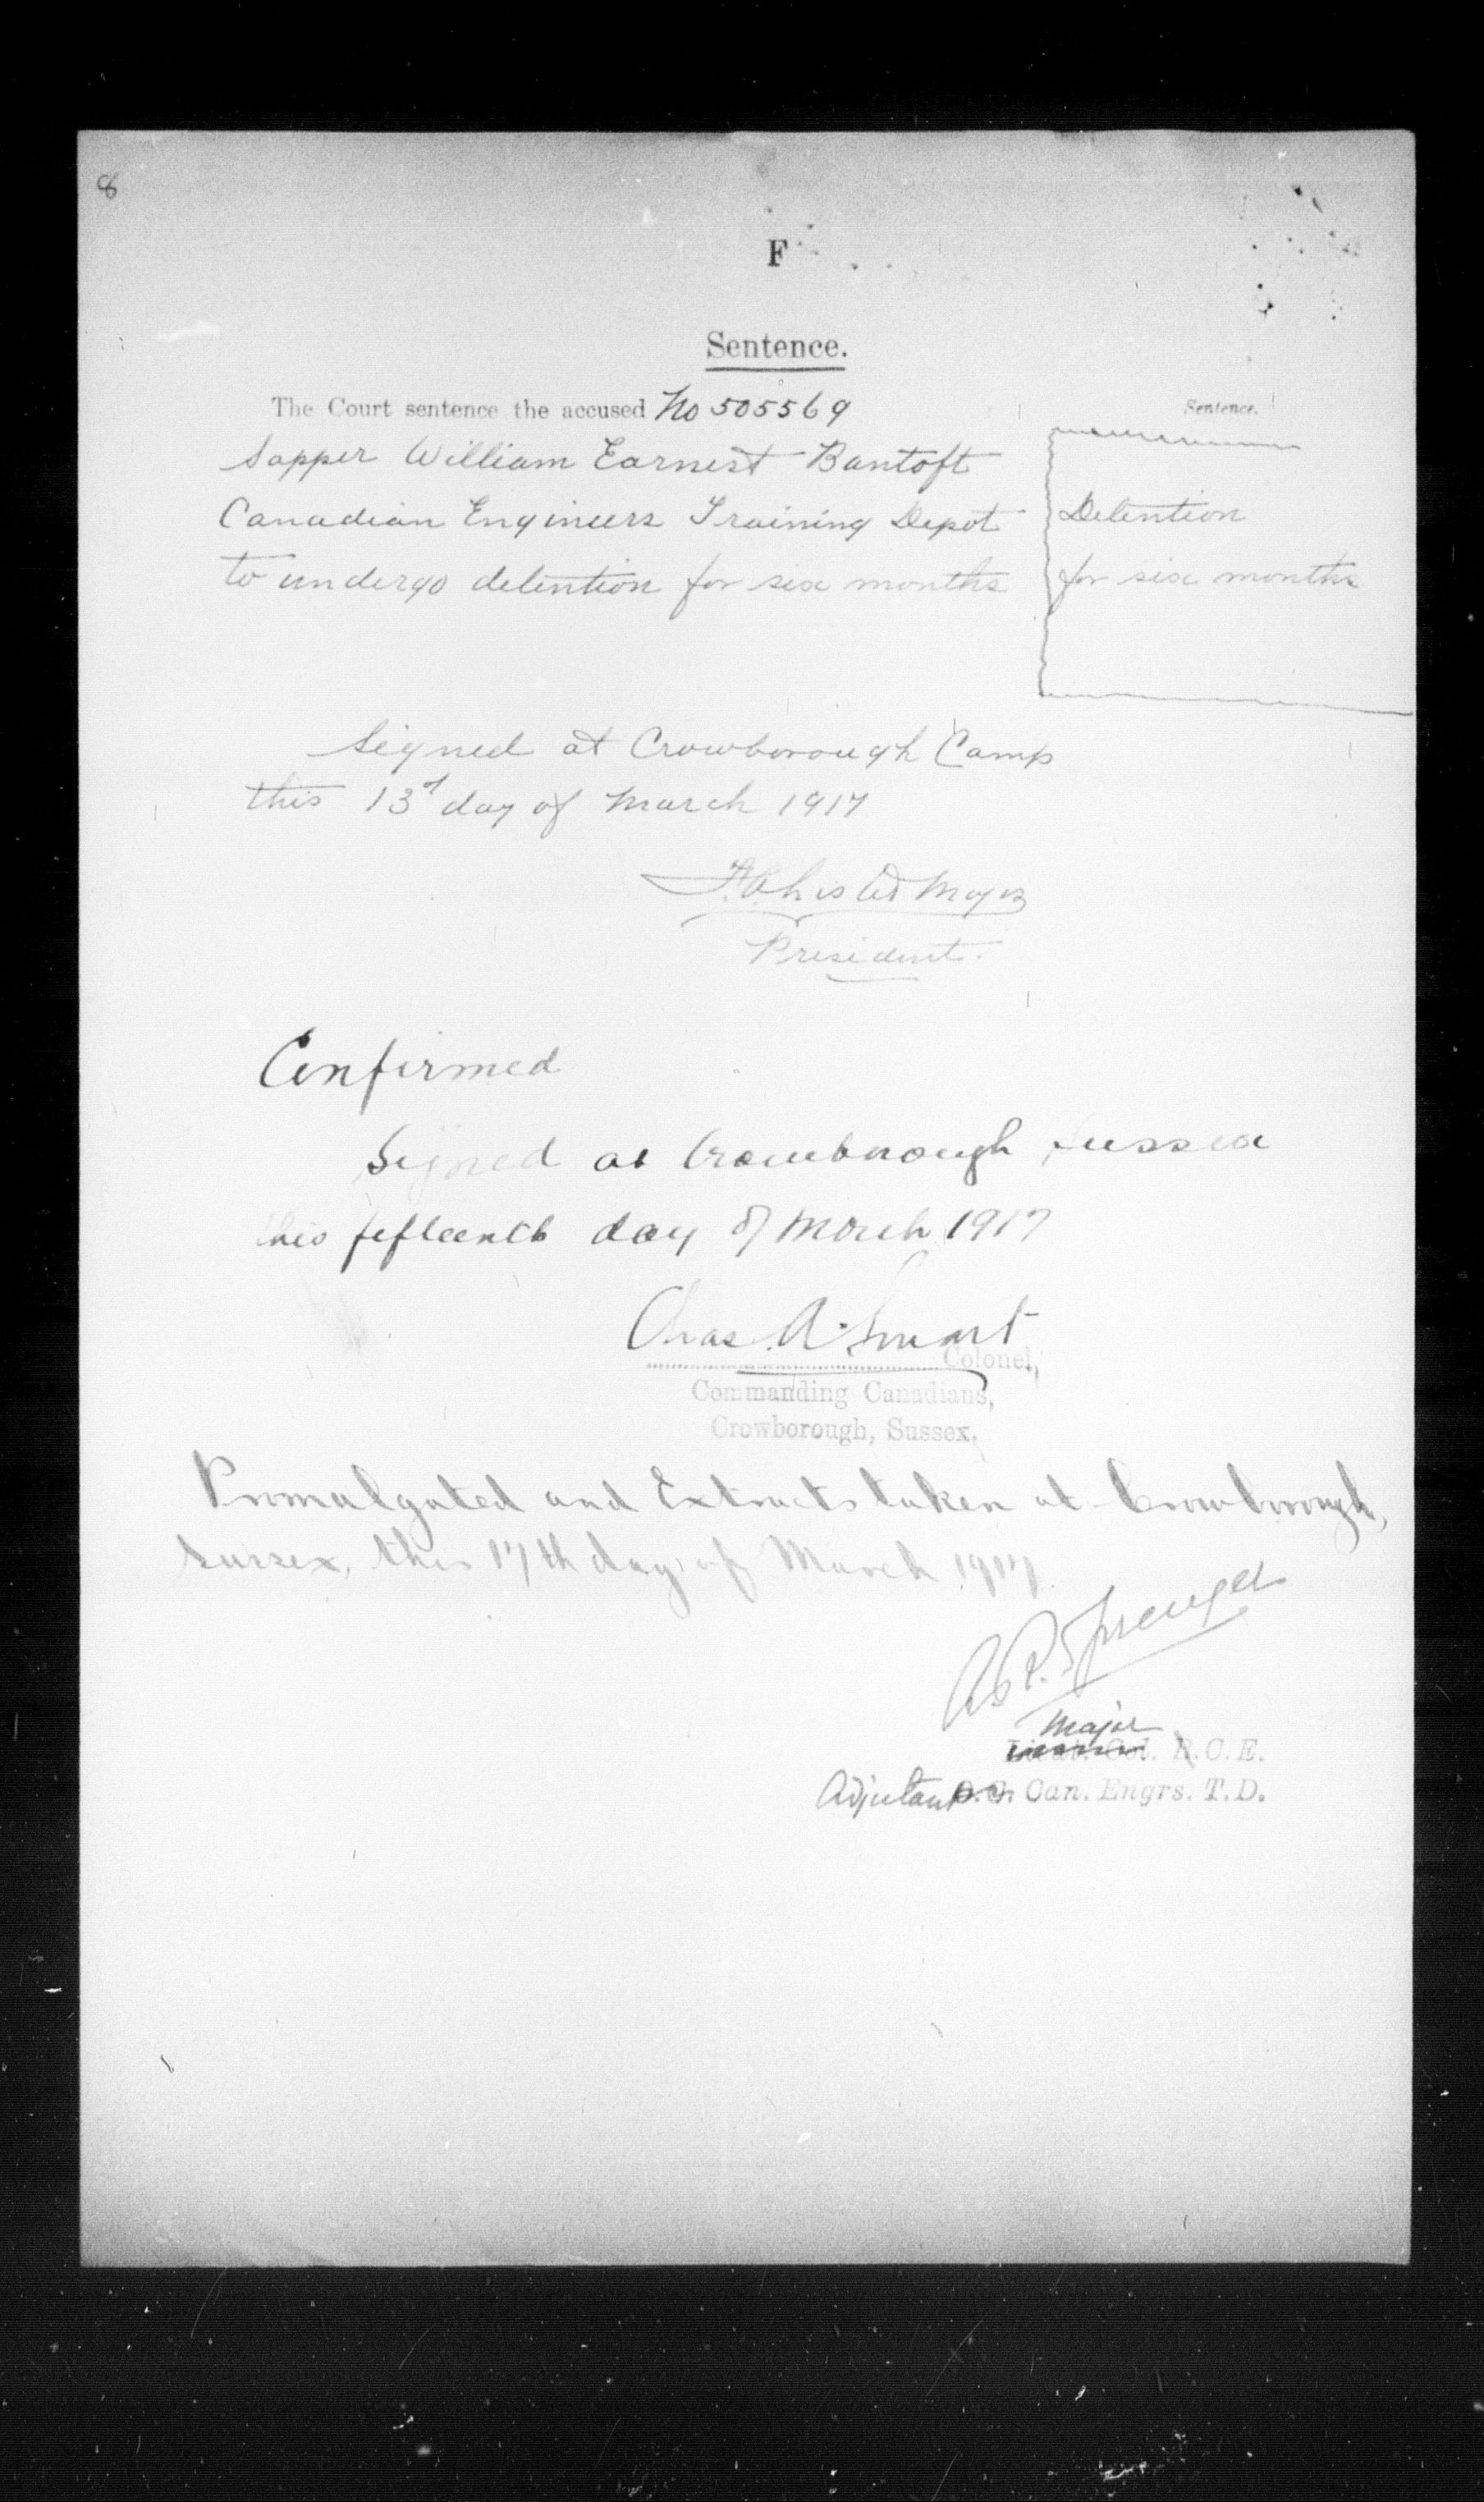 8
F
Sentence.
The Court sentence the accused No 505569
Sapper William Earnest Bantoft
Canadian Engineers Training Depot
to undergo detention for six months
Sentence.
Detention
for six months
Signed at Crowborough Camp
this 13th day of March 1917
Major
President.
Confirmed
Signed at Crowborough Sussex
this fifteenth day of March 1917
Chas. A. Smart
Colonel,
Commanding Canadians,
Crowborough, Sussex.
Promulgated and Extracts taken at Crowborough,
Sussex, this 17th day of March 1917.
Major
Lieut. Col. R.C.E.
Adjutant O.C. Can. Engrs. T.D.